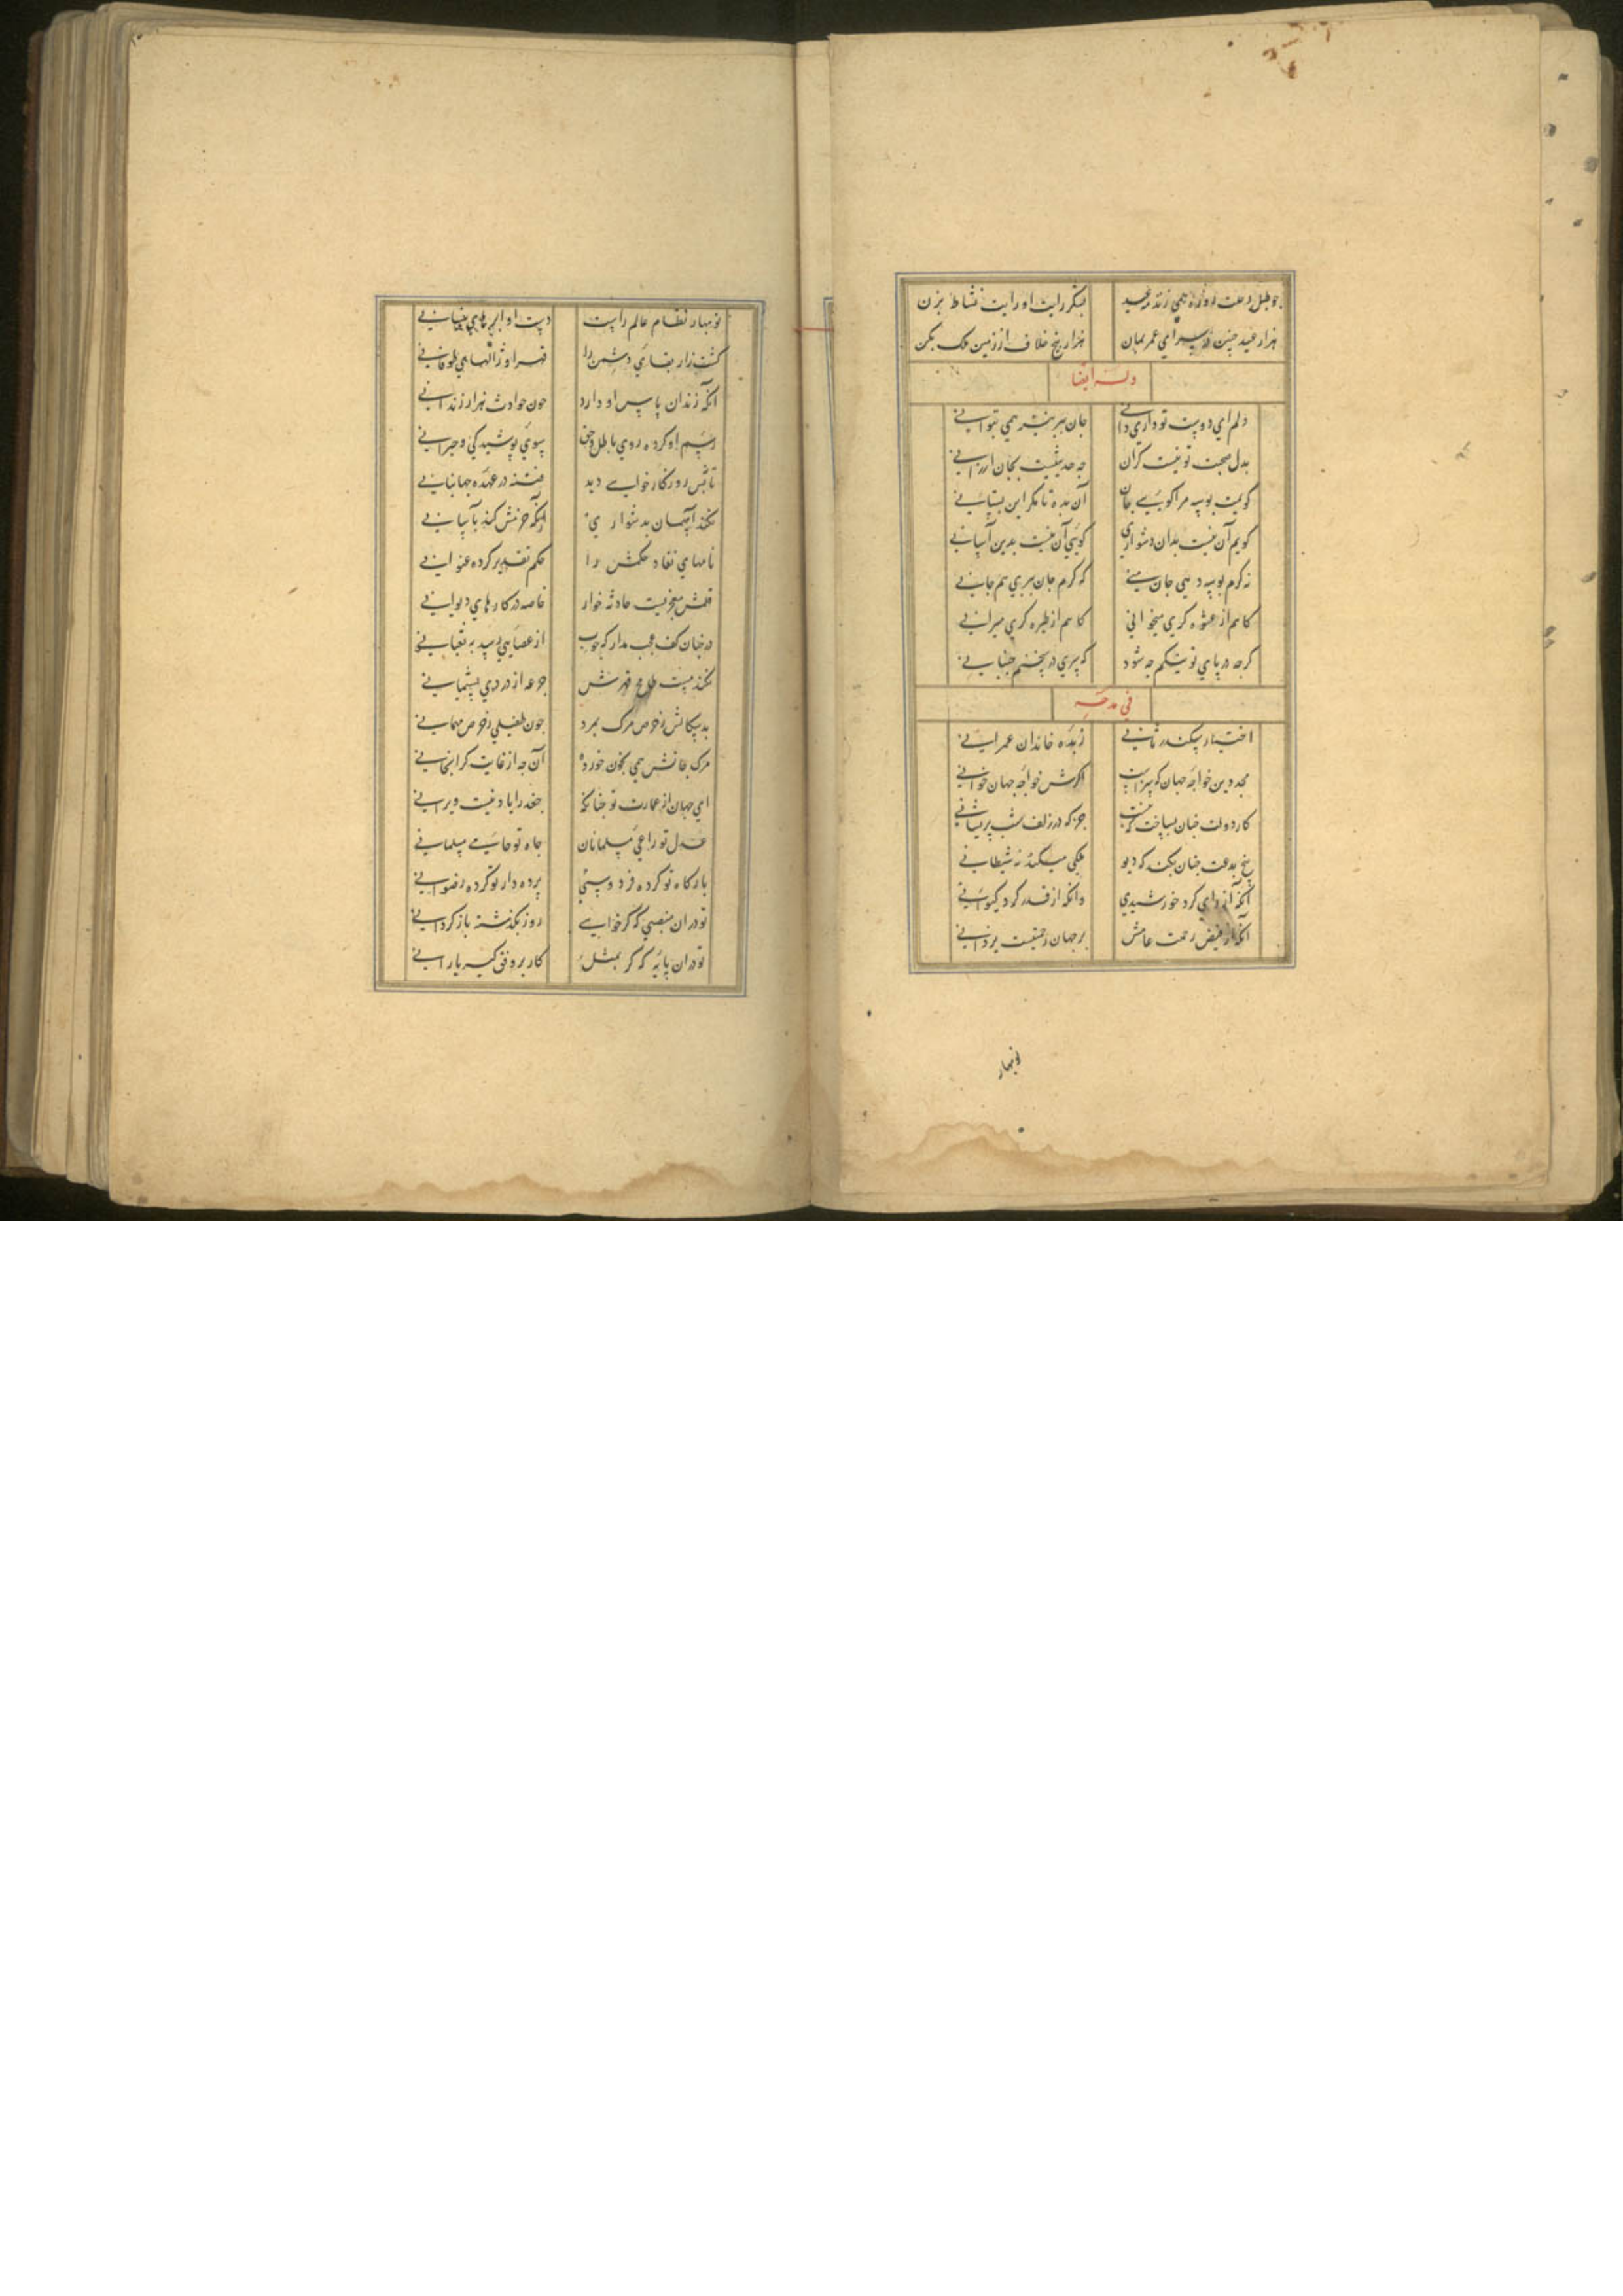 چو طبل رحلت روزه همی زند رمضید
بشکر رایت او رایت نشاط بزن
هزار عید چنین در سرای عمر بمان
هزار بیخ خلاف از زمین ملک بکن
وله ایضا
دلم ای دوست تو داری دانی
جان ببر نیز همی بتوانی
بدل صحبت تو نیست کران
چه حدیثیست بجان ارزانی
گویمت بوسه مرا گویی جان
آن بده تا مگر این بستانی
گویم آن نیست بدان دشواری
گویی آن نیست بدین آسانی
نه کرم بوسه دهی جان منی
که کرم جان ببری هم جانی
کاهم از عشوه گری میخوانی
کاهم از طیره گری میرانی
گرچه در پای تو میرم چه شود
که سری در سخنم جنبانی
فی مدحه
اختیار سکندر ثانی
زبده خاندان عمرانی
مجد دین خواجه جهان که سزاست
اگرش خواجه جهان خوانی
کار دولت چنان بساخت که نیست
جز که در زلف شب پریشانی
بیخ بدعت چنان بکند که دیو
ملکی میکند نه شیطانی
آنکه از رای کرد خورشیدی
وانکه از قدر کرد کیوانی
آنکه از فیض رحمت عامش
بر جهان رحمتیست یزدانی
نوبهار
نوبهار نظام عالم راست
دست او ابرهای نیسانی
کشت زار بقای دشمن را
قهر او ژالهای طوفانی
آنکه زندان پاس او دارد
چون حوادث هزار زندانی
رسم او کرده روی باطل و حق
سوی پوشیدگی و حیرانی
تاش در روزگار خواب دید
فتنه در عهده جهانبانی
نکند آسمان بدشواری
آنکه عزمش کند بآسانی
نامهای نفاذ حکمش را
حکم تقدیر کرده عنوانی
قلمش معجزیست حادثه خوار
خاصه در کارهای دیوانی
در چنان کف عجب مدار که چوب
از عصایی رسد به ثعبانی
نکند مست طافح قهرش
جرعه از دردی پشیمانی
بد سکالش ز حرص مرگ بمرد
چون طفیلی ز حرص مهمانی
مرگ جانش همی بخون خورده
آن چه از غایت گرانجانی
ای جهان از عمارت تو چنانکه
جغد را یاد نیست ویرانی
عدل تو راعی مسلمانان
جاه تو حامی مسلمانی
بارگاه تو کرده فردوسی
پرده دار تو کرده رضوانی
تو در آن منصبی که گر خواهی
روز بگذشته بازگردانی
تو در آن پایه که گر بمثل
کار بر وفق کبریا رانی